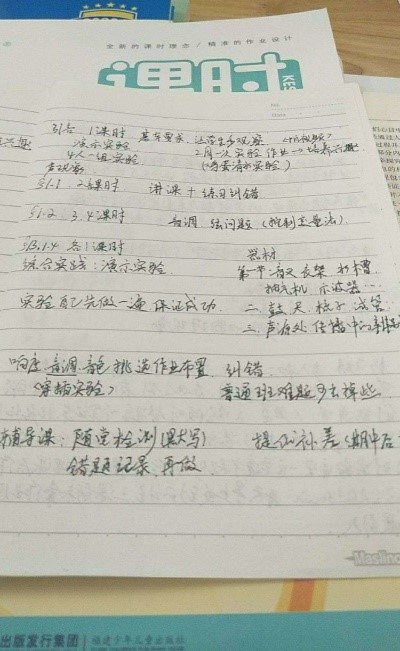 全新的课时理念/精准的作业设计
课时
KES
No
Date
引言 1课时 基本要求,让学生多观察
演示实验 2周一次实验作业→培养兴趣
4人一组实验
§1.1 2课时 讲课+练习纠错
§1.2 3.4课时 音调 弦问题(控制变量法)
§1.3.1.4 各1课时 器材
综合实践:演示实验 第一节 音叉 衣架 水槽
抽气机 示波器…
实验自己先做一遍,保证成功. 二、鼓 尺 梳子 试管…
三、声源处 传播中
响度 音调 音色 挑选作业布置 纠错
(穿插实验) 普通班难题多去掉些
辅导课:随堂检测(默写) 提优补差(期中后
错题记录 再做
Maslino
出版发行集团 福建少年儿童出版社